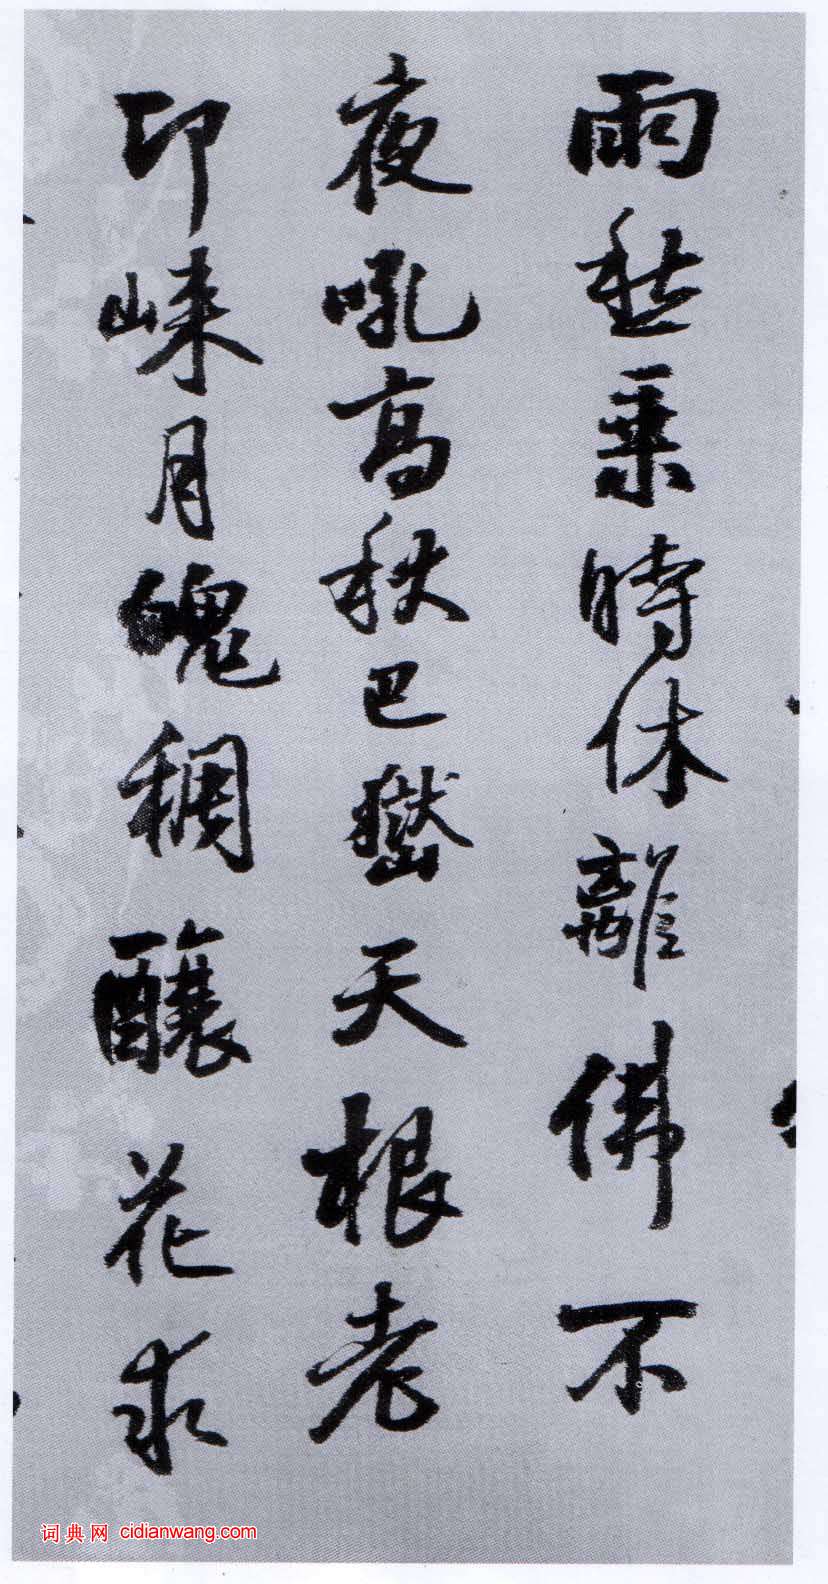 雨乘時休離佛不
夜吼高秋巴嶽天根老
卭崍月魄稠釀花求
词典网 cidianwang.com